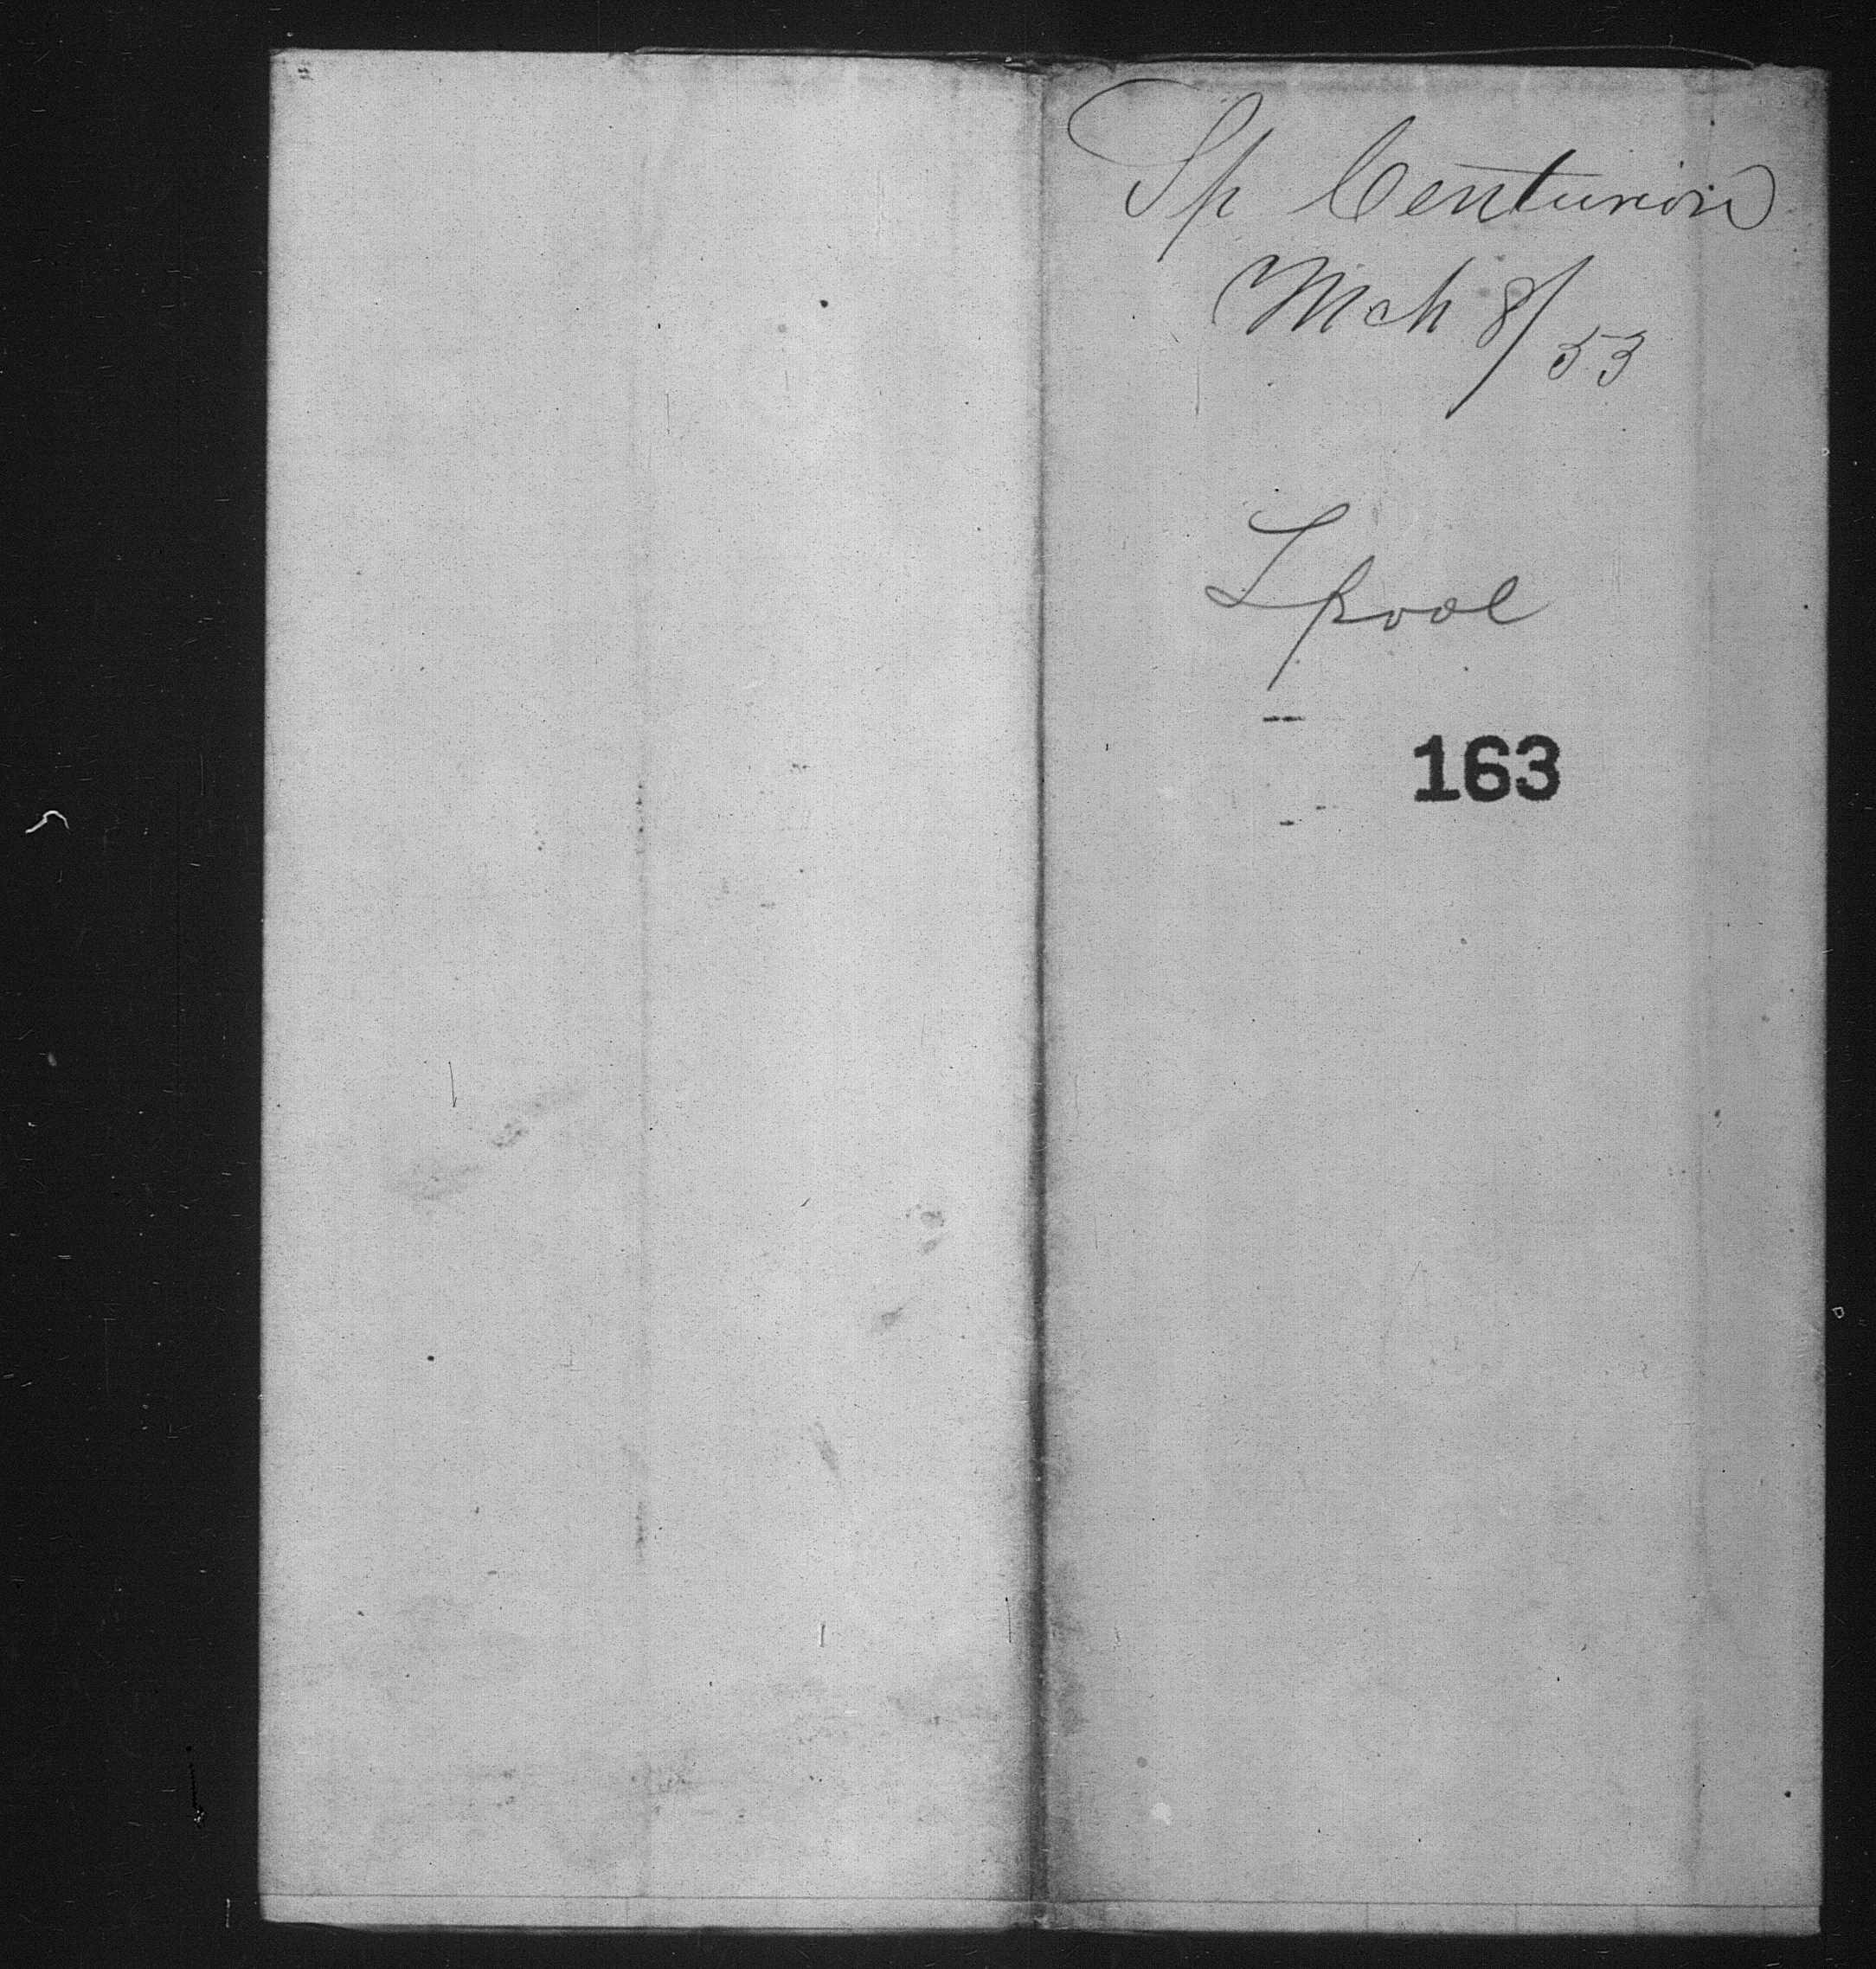 Sp Centurion
Mch 8/53
Lpool
163